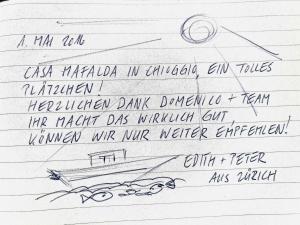 1. MAI 2016
CASA MAFALDA IN CHIOGGIO, EIN TOLLES
PLÄTZCHEN!
HERZLICHEN DANK DOMENICO + TEAM
IHR MACHT DAS WIRKLICH GUT,
KÖNNEN WIR NUR WEITER EMPFEHLEN!
EDITH + PETER
AUS ZÜRICH